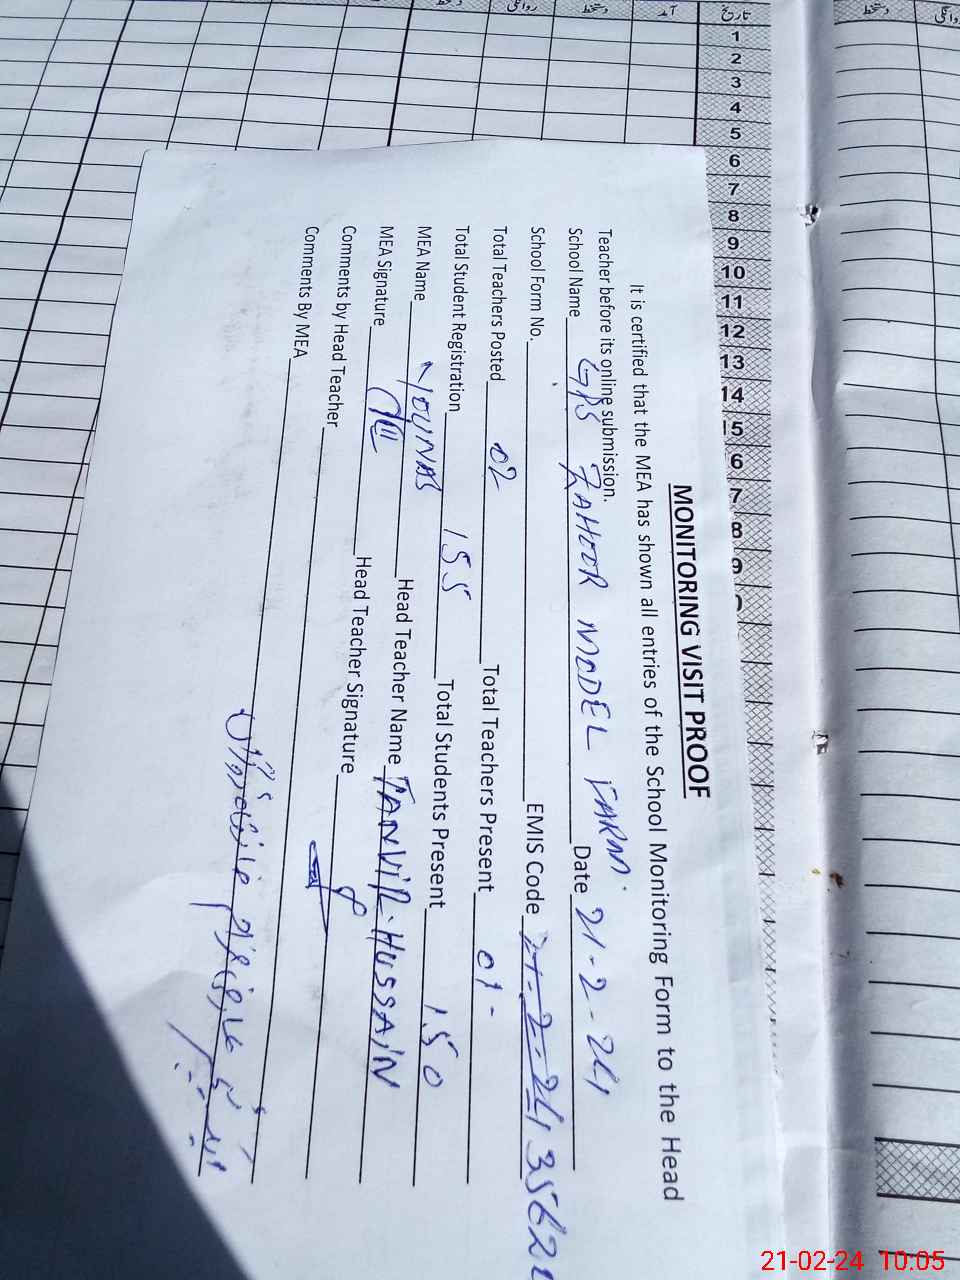 MONITORING VISIT PROOF
It is certified that the MEA has shown all entries of the School Monitoring Form to the Head
Teacher before its online submission.
School Name GPS ZAHOOR MODEL FARM. Date 21-2-24
School Form No. EMIS Code 21-2-24
Total Teachers Posted 02 Total Teachers Present 01-
Total Student Registration 155 Total Students Present 150
MEA Name YOUNAS Head Teacher Name TANVIR. HUSSAIN
MEA Signature Head Teacher Signature
Comments by Head Teacher
Comments By MEA
تاریخ
آمد
دستخط
روانگی
دستخط
1
2
3
4
5
6
7
8
9
10
11
12
13
14
15
6
7
8
9
21-02-24 10:05